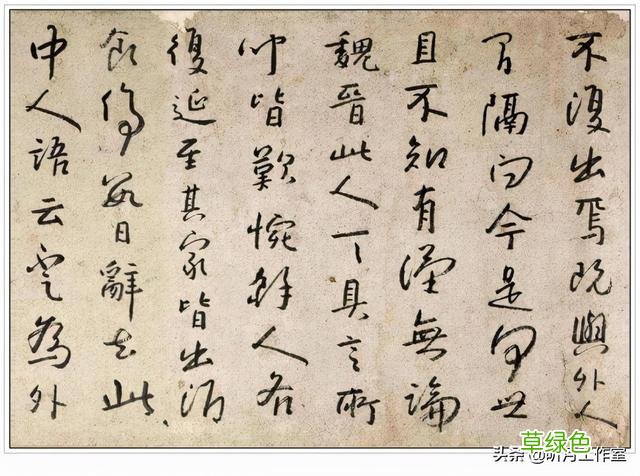 不復出焉既與外人
間隔問今是何世
且不知有漢無論
魏晉此人一一具言所
聞皆歎惋餘人各
復延至其家皆出酒
食停數日辭去此
中人語云不足為外
草绿色
头条 工作室